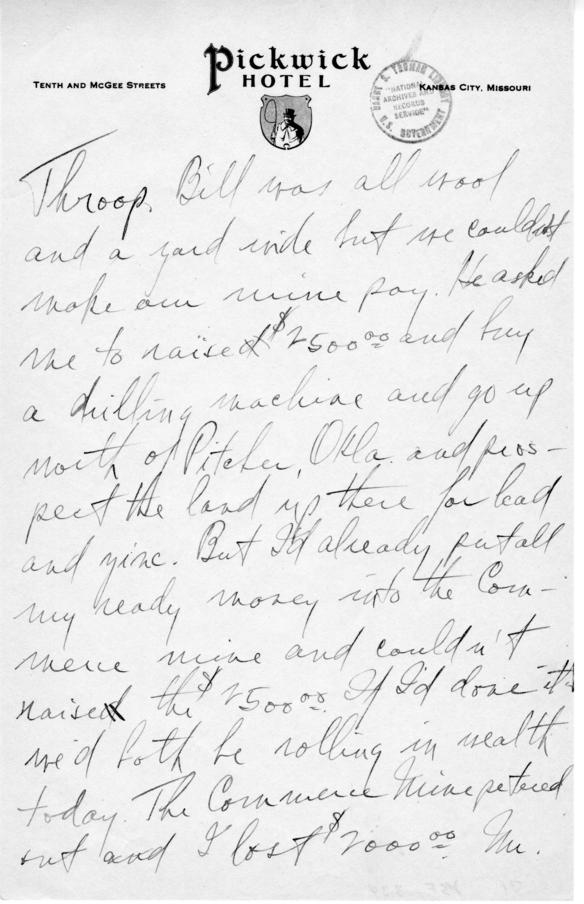 Pickwick
HOTEL
TENTH AND MCGEE STREETS
KANSAS CITY, MISSOURI
HARRY S. TRUMAN LIBRARY
"NATIONAL
ARCHIVES AND
RECORDS
SERVICE"
U.S. GOVERNMENT
Throop. Bill was all wool
and a yard wide but we couldn't
make our mine pay. He asked
me to raised $2500 00 and buy
a drilling machine and go up
north of Pitcher, Okla. and pros-
pect the land up there for lead
and zinc. But I'd already put all
my ready money into the Com-
merce mine and couldn't
raised the $2500 00. If I'd done it
we'd both be rolling in wealth
today. The Commerce Mine petered
out and I lost $2000 00. Mr.